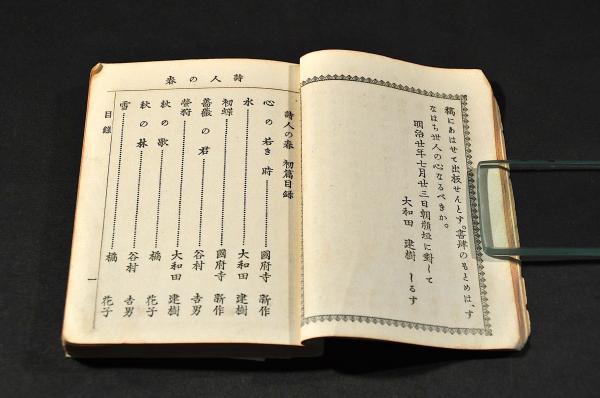 稿にあはせて出板せんとす。書肆のもとめは、す
なはち世人の心なるべきか。
明治廿年七月廿三日朝顔垣に對して
大和田 建樹 しるす
詩人の春
詩人の春 初篇目録
心の若き時 國府寺 新作
水 大和田 建樹
初蝶 國府寺 新作
薔薇の君 谷村 吉男
螢狩 大和田 建樹
秋の歌 橘 花子
秋の林 谷村 吉男
雪 橘 花子
目録
一